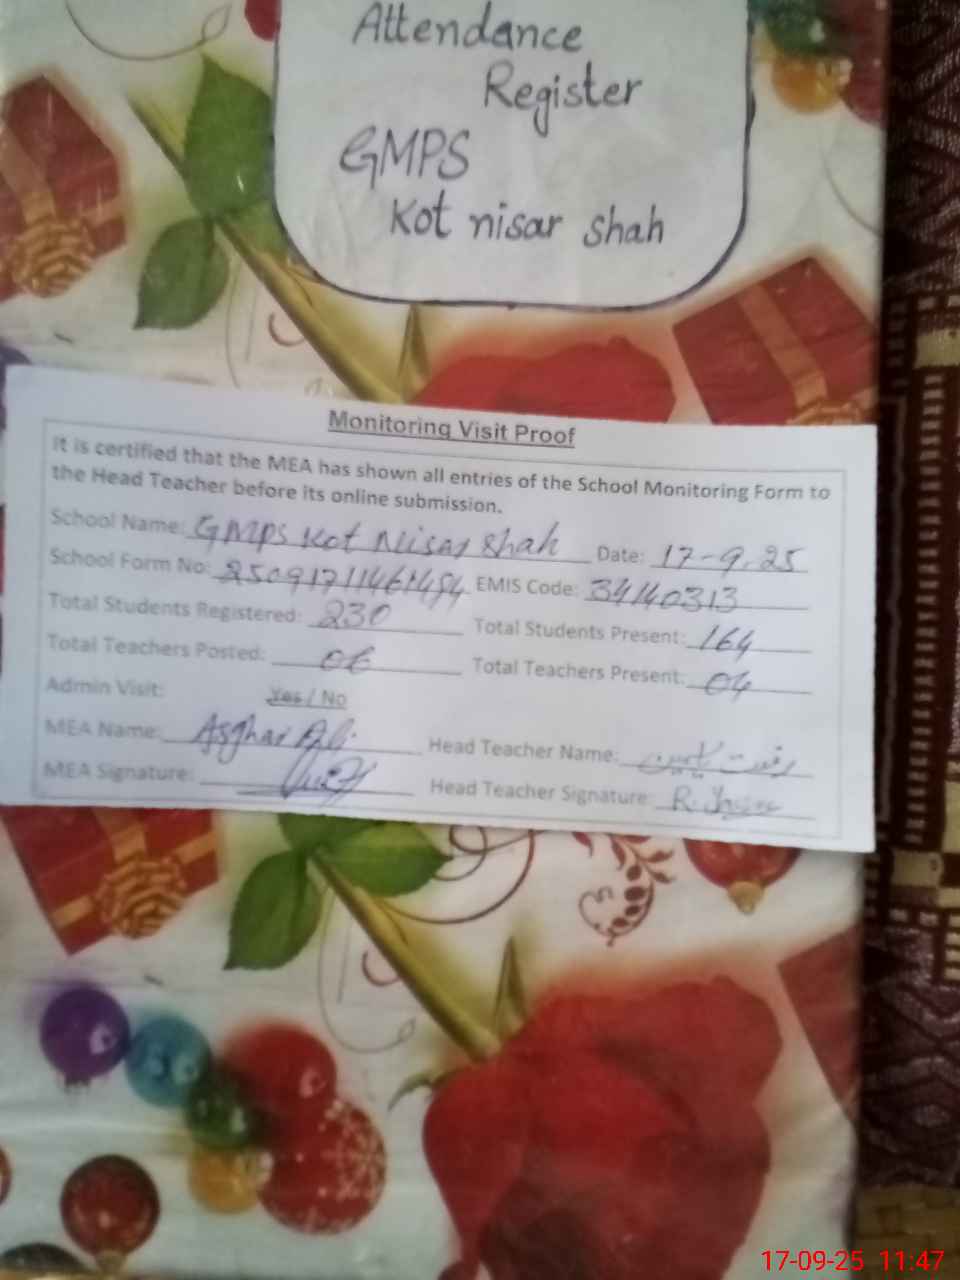 Attendance
Register
GMPS
Kot nisar shah
Monitoring Visit Proof
It is certified that the MEA has shown all entries of the School Monitoring Form to
the Head Teacher before its online submission.
School Name: GMPS Kot Nisar Shah Date: 17-9-25
School Form No: EMIS Code: 34140313
Total Students Registered: 230 Total Students Present: 164
Total Teachers Posted: 06 Total Teachers Present: 04
Admin Visit: Yes / No
MEA Name: Asghar Ali Head Teacher Name: رفعت یاسمین
MEA Signature: Head Teacher Signature:
17-09-25 11:47